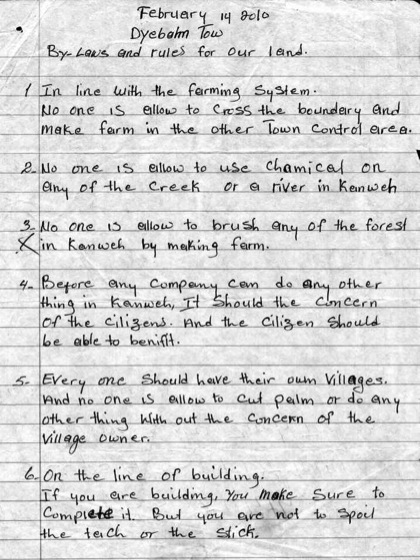 February 14 2010
Dyebahn Tow
By-Laws and rules for our land.
1 In line with the farming System.
No one is allow to Cross the boundary and
make farm in the other Town Control area.
2- No one is allow to use Chamical on
any of the Creek or a river in Kanweh
3- No one is allow to brush any of the forest
X in Kanweh by making farm.
4- Before any Company Can do any other
thing in Kanweh, It Should the Concern
of the Cilizens. And the Cilizen Should
be able to benifit.
5- Every one Should have their own Villages.
And no one is allow to cut palm or do any
other thing with out the Concern of the
Village owner.
6- On the line of building.
If you are building, you make Sure to
Complete it. But you are not to Spoil
the tach or the Stick.